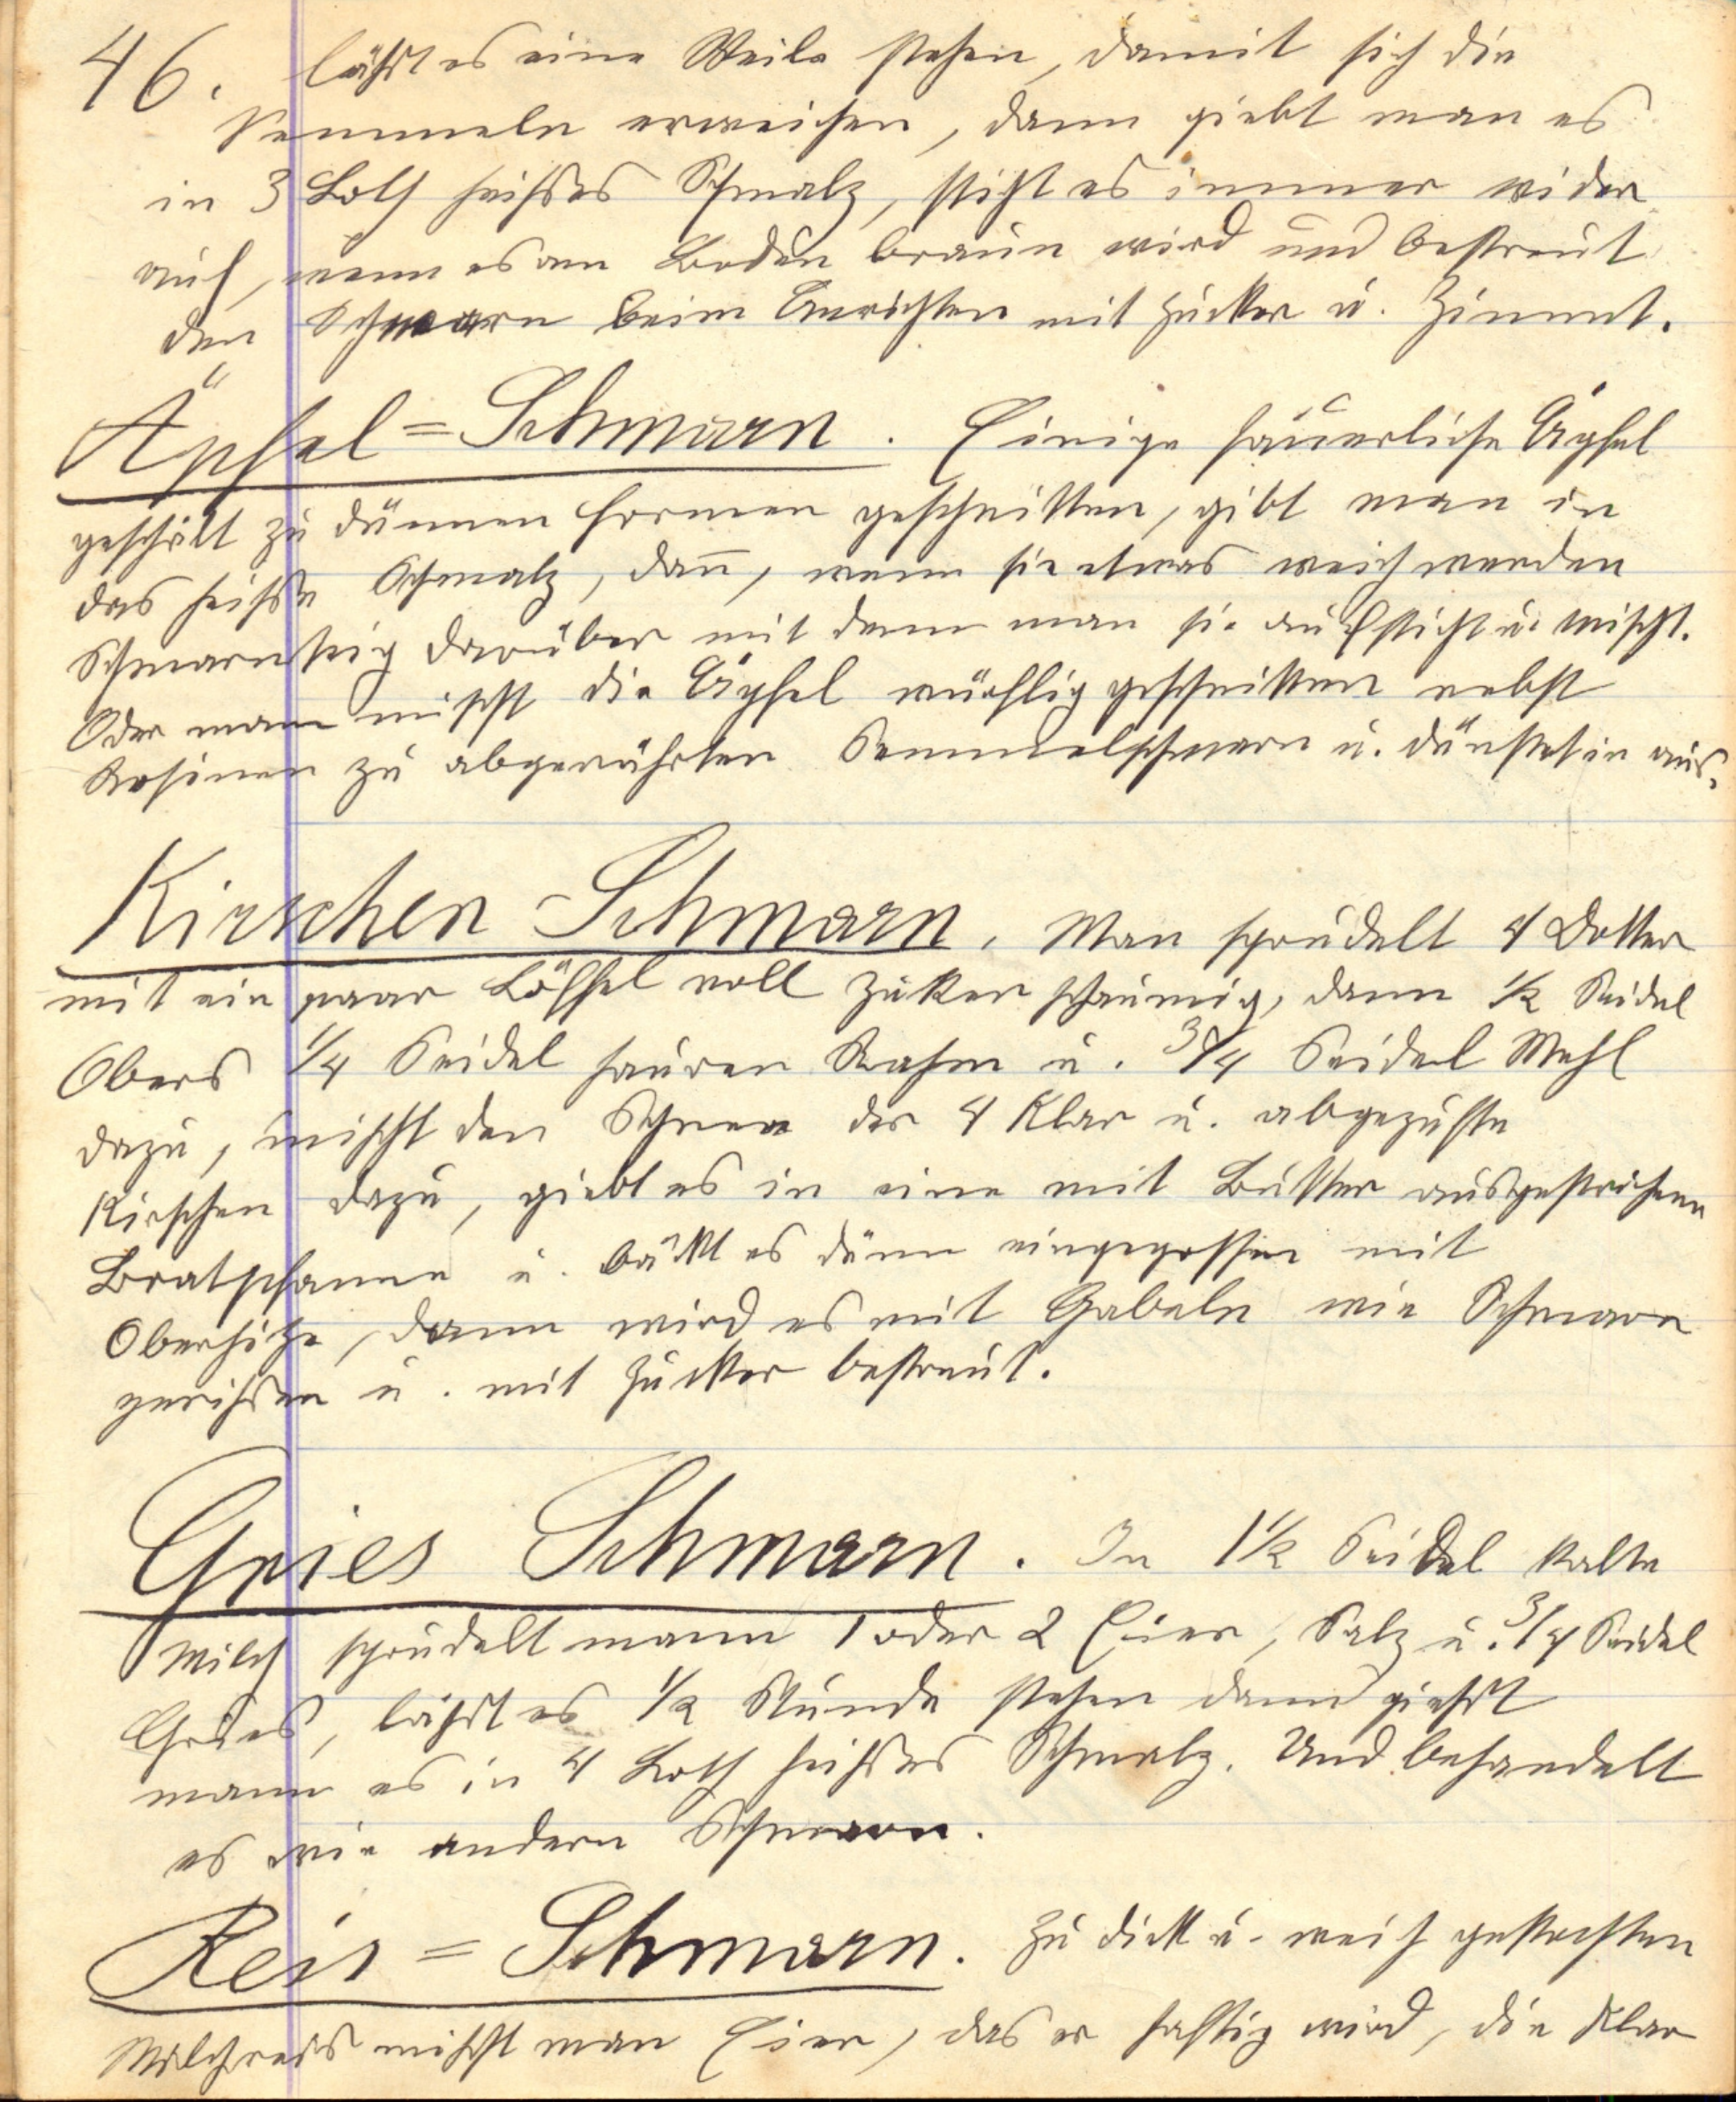 46. läßt es eine Weile stehen, damit sich die
Semmeln erweichen, dann giebt man es
in 3 Loth heißes Schmalz, sticht es immer wider
auf, wenn es am Boden braun wird und bestreut
den Schmarn beim Anrichten mit Zucker u. Zimmt.
Äpfel=Schmarn. Einige säuerliche Äpfel
geschält zu dünnen Formen geschnitten, gibt man in
das heiße Schmalz, dañ, wenn sie etwas weich werden
Schmarnteig darüber mit dem man sie aufsticht u. mischt.
Oder man mischt die Äpfel würflig geschnitten nebst
Rosinen zu abgerührten Semmelschmarn u. dünstet in aus.
Kirschen-Schmarn. Man sprudelt 4 Dotter
mit ein paar Löffel voll Zuker schaumig, dann 1/2 Seidel
Obers 1/4 Seidel sauren Rahm u. 3/4 Seidel Mehl
dazu, mischt den Schnee der 4 Klar u. abgezupfte
Kirschen dazu, giebt es in eine mit Butter ausgestrichene
Bratpfanne u. bäckt es dünn eingegossen mit
Oberhitze, dann wird es mit Gabeln wie Schmarn
gerißen u. mit Zucker bestreut.
Gries Schmarn. In 1 1/2 Seidel kalte
Milch sprudelt mann 1 oder 2 Eier, Salz u. 3/4 Seidel
Gries, läßt es 1/2 Stunde stehen dann gießt
mann es in 4 Loth heißes Schmalz. Und behandelt
es wie andern Schmarn.
Reis=Schmarn. Zu dick u. weich gekochten
Milchreis mischt man Eier, das er saftig wird, die Klar